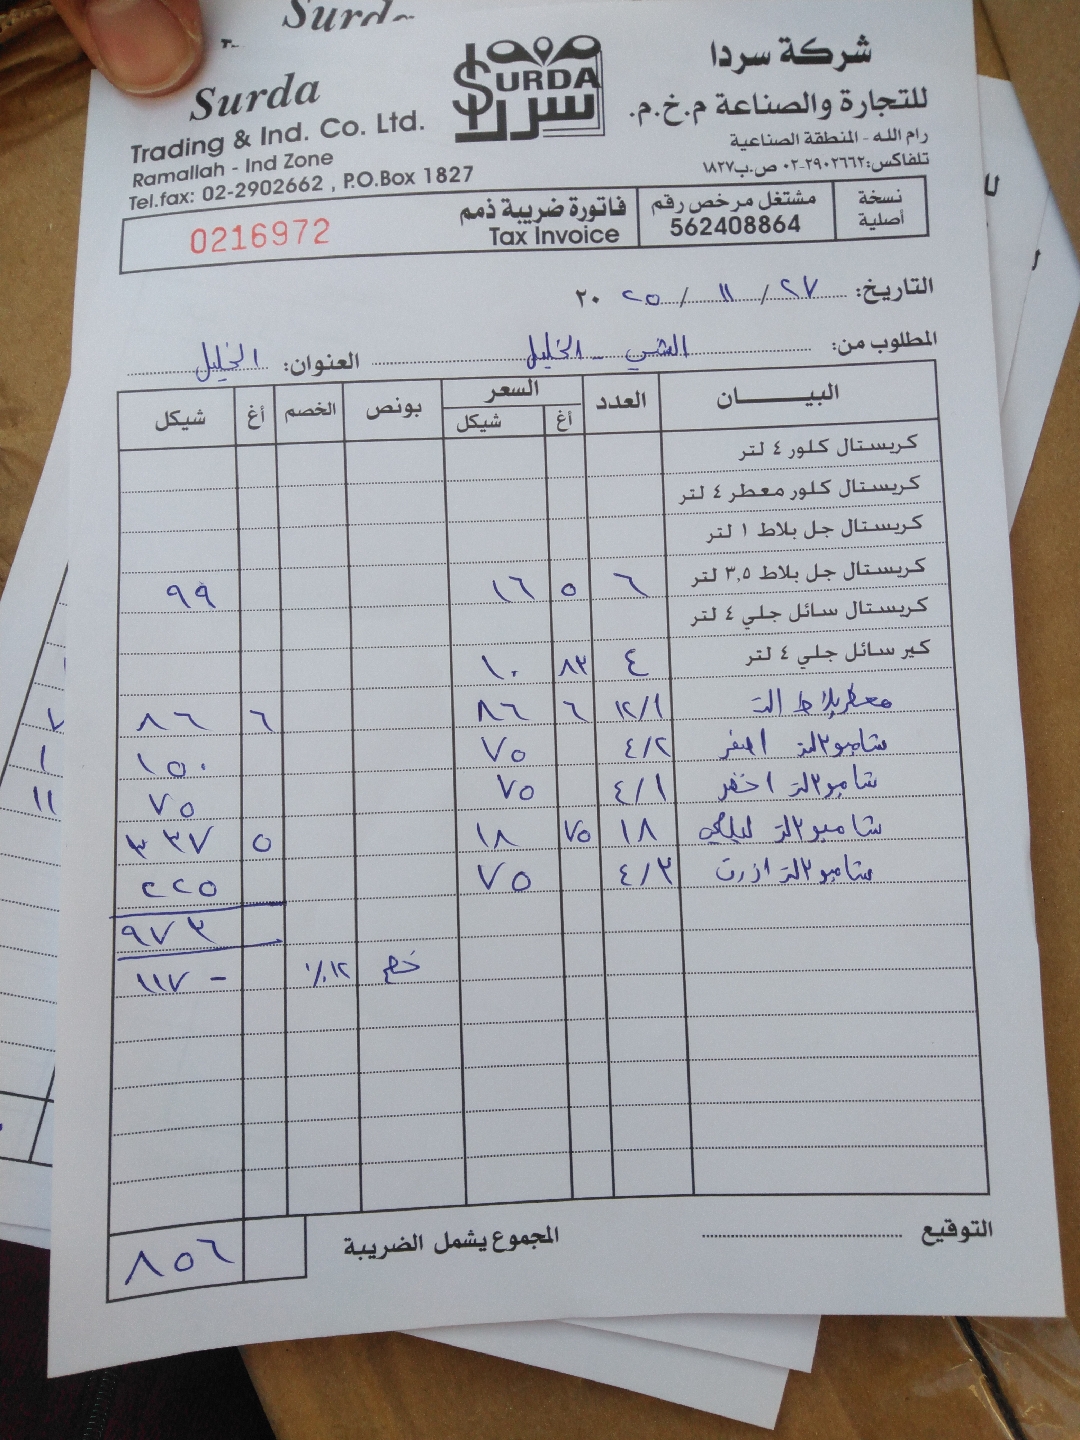 Surda
Surda
Trading & Ind. Co. Ltd.
Ramallah - Ind Zone
Tel.fax: 02-2902662 , P.O.Box 1827
SURDA
سردا
شركة سردا
للتجارة والصناعة م.خ.م.
رام الله - المنطقة الصناعية
تلفاكس: ٢٩٠٢٦٦٢-٠٢ ص.ب ١٨٢٧
نسخة أصلية
مشتغل مرخص رقم 562408864
فاتورة ضريبة ذمم
Tax Invoice
0216972
التاريخ: ٢٧ / ١١ / ٢٠٢٥
المطلوب من: - الخليل العنوان: الخليل
البيان العدد السعر بونص الخصم أغ شيكل
أغ شيكل
كريستال كلور ٤ لتر
كريستال كلور معطر ٤ لتر
كريستال جل بلاط ١ لتر
كريستال جل بلاط ٣,٥ لتر ٦ ٥ ١٦ ٩٩
كريستال سائل جلي ٤ لتر
كير سائل جلي ٤ لتر ٤ ٨٣ ١٠
معطر بلاط ١٢/١ ٦ ٨٦ ٦ ٨٦
شامبو ٢لتر اصفر ٤/٢ ٧٥ ١٥٠
شامبو ٢لتر اخضر ٤/١ ٧٥ ٧٥
شامبو ٢لتر ١٨ ٧٥ ١٨ ٥ ٣٣٧
شامبو ٢لتر ازرق ٤/٣ ٧٥ ٢٢٥
٩٧٣
خصم ١٢٪ - ١١٧
التوقيع المجموع يشمل الضريبة ٨٥٦